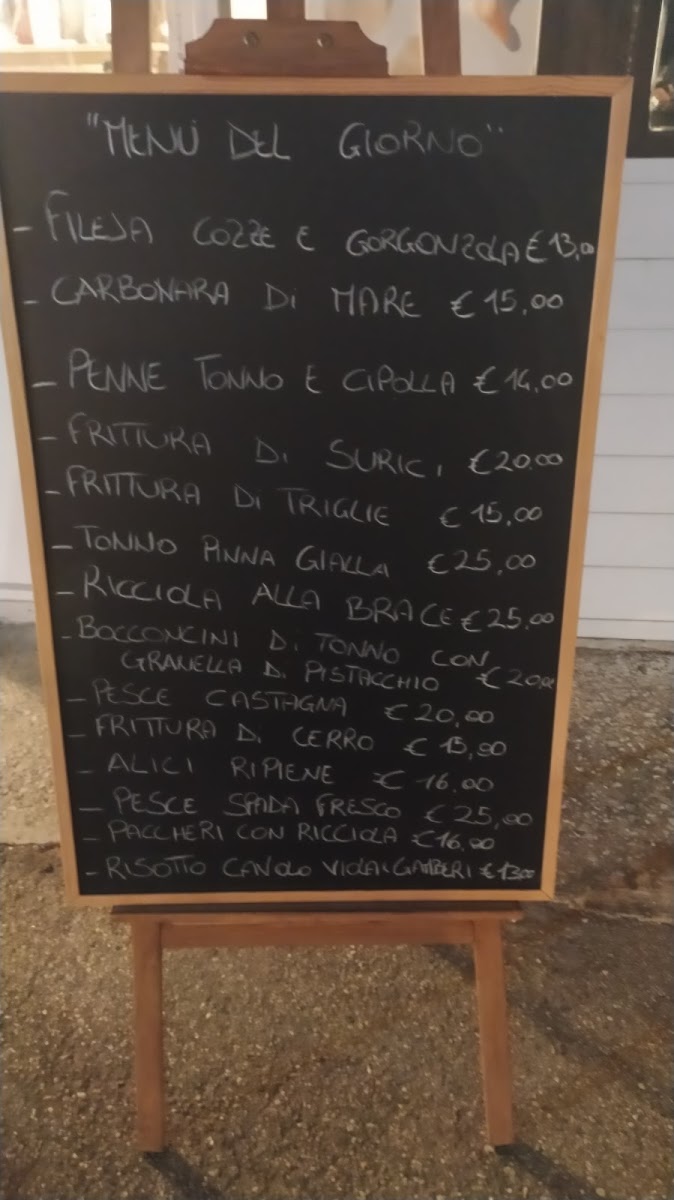 "MENÙ DEL GIORNO"
- FILEJA COZZE E GORGONZOLA € 13,00
- CARBONARA DI MARE € 15,00
- PENNE TONNO E CIPOLLA € 14,00
- FRITTURA DI SURICI € 20,00
- FRITTURA DI TRIGLIE € 15,00
- TONNO PINNA GIALLA € 25,00
- RICCIOLA ALLA BRACE € 25,00
- BOCCONCINI DI TONNO CON
GRANELLA DI PISTACCHIO € 20,00
- PESCE CASTAGNA € 20,00
- FRITTURA DI CERRO € 15,00
- ALICI RIPIENE € 16,00
- PESCE SPADA FRESCO € 25,00
- PACCHERI CON RICCIOLA € 16,00
- RISOTTO CAVOLO VIOLA E GAMBERI € 13,00